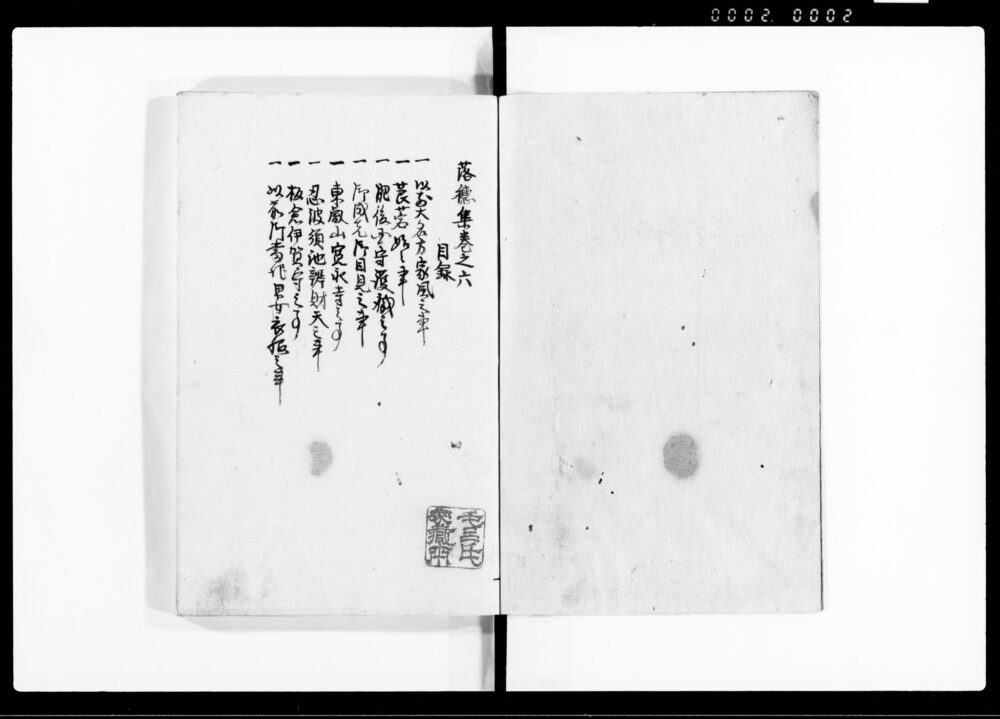 0002. 0002
落穂集巻之六
目録
一 以前大名方家風之事
一 莨菪始之事
一 肥後国守護職之事
一 御成先御目見之事
一 東叡山寛永寺之事
一 忍波須池辨財天之事
一 板倉伊賀守之事
一 以前御当地男女衣服之事
毛呂氏